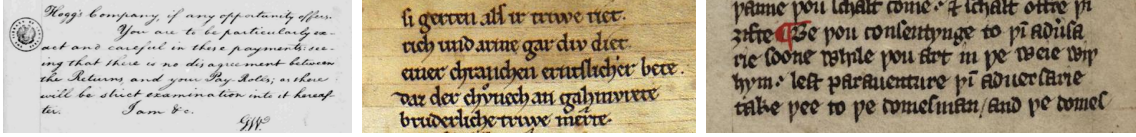 Hogg's Company, if any opportunity offers.
You are to be particularly ex-
act and careful in these payments: see-
ing that there is no disagreement between
the Returns, and your Pay-Rolls; as there
will be strict examination into it hereaf-
ter. I am &c.
GW.
si gerten als ir triwe riet.
rich und arme gar div diet.
einer chranchen ernstlicher bete.
daz der chv̊nech an gahmvrete
bruderliche triwe merte.
þanne þou schalt come · & schalt offre þi
ȝifte ¶ Be þou consentynge to þi aduersa
rie soone while þou art in þe weie wiþ
hym · lest parauenture þi aduersarie
take þee to þe domesman / and þe domes